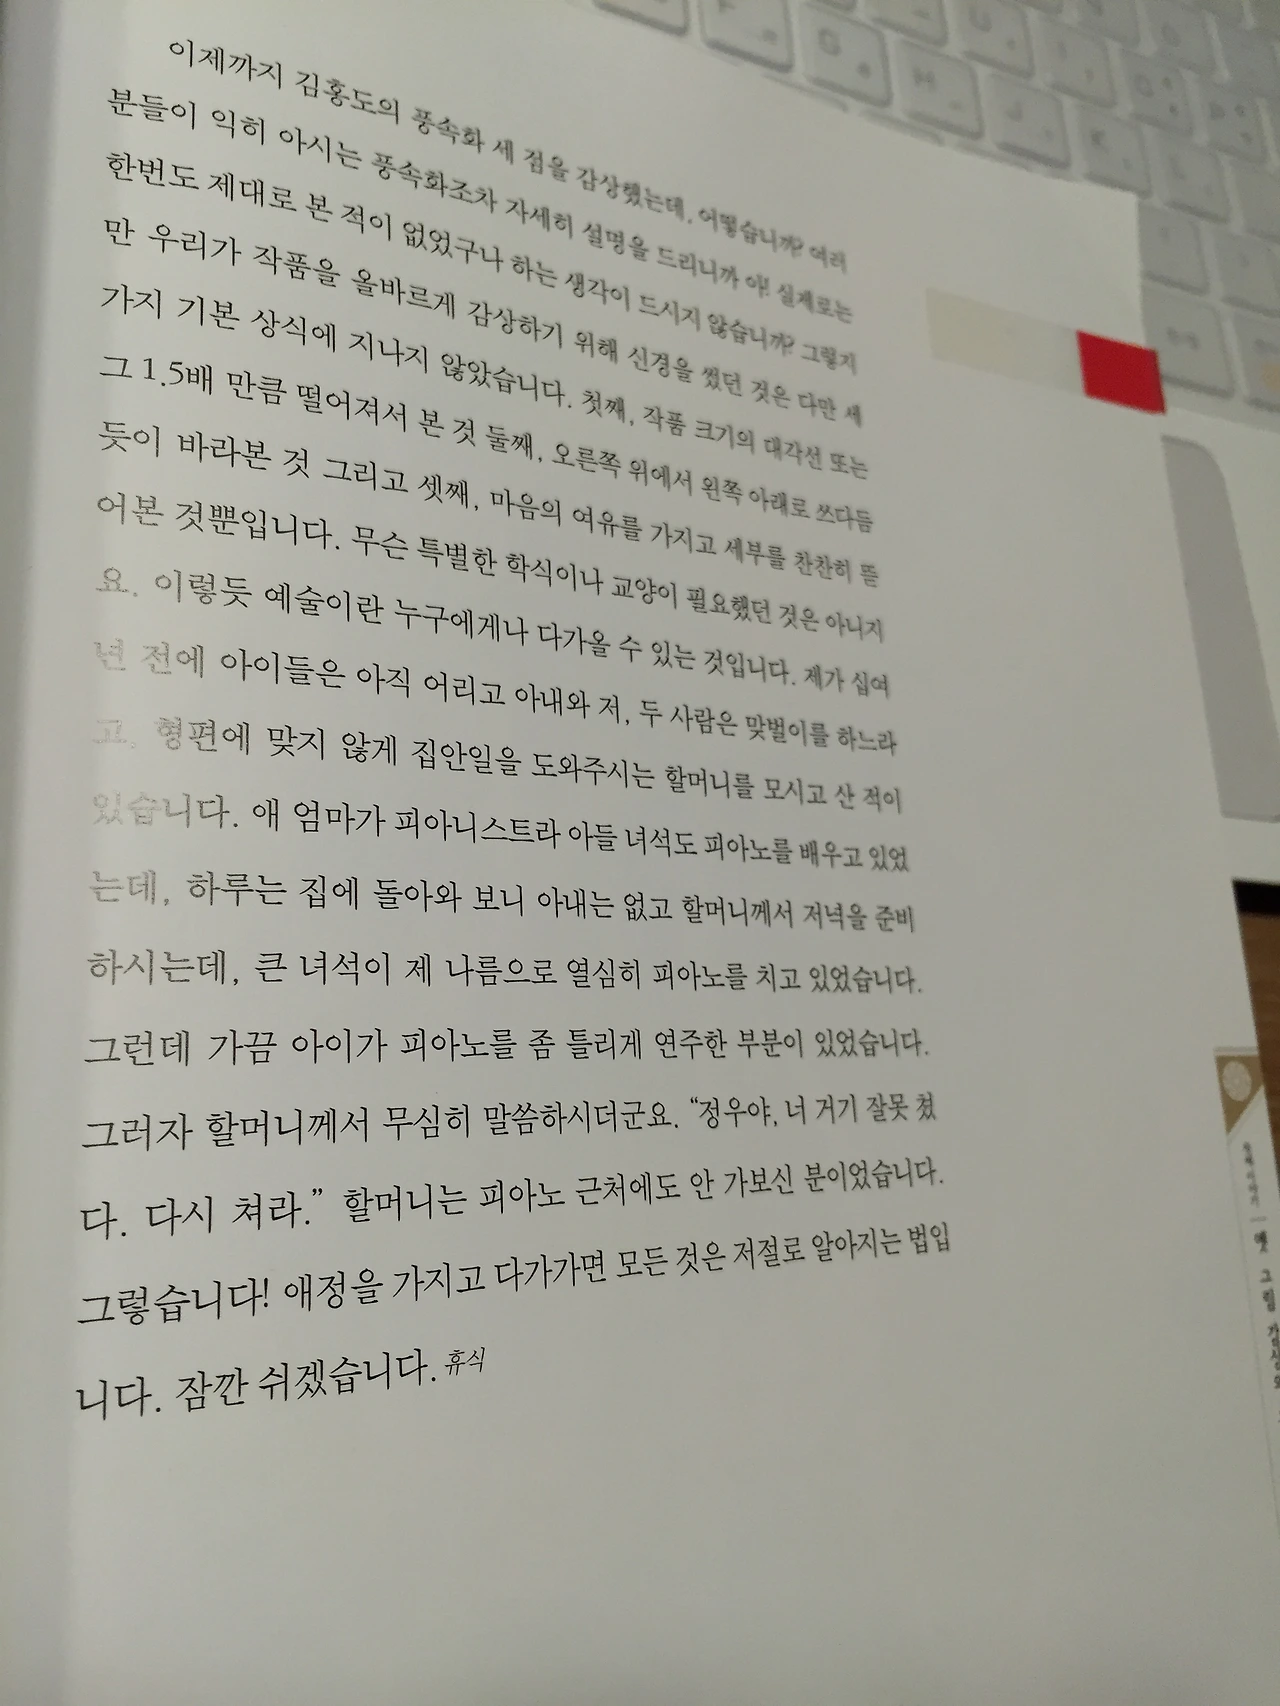 이제까지 김홍도의 풍속화 세 점을 감상했는데, 어떻습니까? 여러
분들이 익히 아시는 풍속화조차 자세히 설명을 드리니까 아! 실제로는
한번도 제대로 본 적이 없었구나 하는 생각이 드시지 않습니까? 그렇지
만 우리가 작품을 올바르게 감상하기 위해 신경을 썼던 것은 다만 세
가지 기본 상식에 지나지 않았습니다. 첫째, 작품 크기의 대각선 또는
그 1.5배 만큼 떨어져서 본 것 둘째, 오른쪽 위에서 왼쪽 아래로 쓰다듬
듯이 바라본 것 그리고 셋째, 마음의 여유를 가지고 세부를 찬찬히 뜯
어본 것뿐입니다. 무슨 특별한 학식이나 교양이 필요했던 것은 아니지
요. 이렇듯 예술이란 누구에게나 다가올 수 있는 것입니다. 제가 십여
년 전에 아이들은 아직 어리고 아내와 저, 두 사람은 맞벌이를 하느라
고, 형편에 맞지 않게 집안일을 도와주시는 할머니를 모시고 산 적이
있습니다. 애 엄마가 피아니스트라 아들 녀석도 피아노를 배우고 있었
는데, 하루는 집에 돌아와 보니 아내는 없고 할머니께서 저녁을 준비
하시는데, 큰 녀석이 제 나름으로 열심히 피아노를 치고 있었습니다.
그런데 가끔 아이가 피아노를 좀 틀리게 연주한 부분이 있었습니다.
그러자 할머니께서 무심히 말씀하시더군요. “정우야, 너 거기 잘못 쳤
다. 다시 쳐라.” 할머니는 피아노 근처에도 안 가보신 분이었습니다.
그렇습니다! 애정을 가지고 다가가면 모든 것은 저절로 알아지는 법입
니다. 잠깐 쉬겠습니다. 휴식
옛 그림 감상의